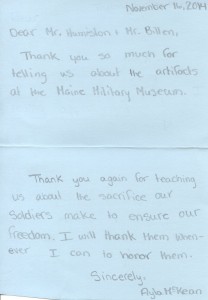 November 14, 2014
Dear Mr. Humiston & Mr. Billen,
Thank you so much for
telling us about the artifacts
at the Maine Military Museum.
Thank you again for teaching
us about the sacrifice our
Soldiers make to ensure our
freedom. I will thank them when-
ever I can to honor them.
Sincerely,
McKean